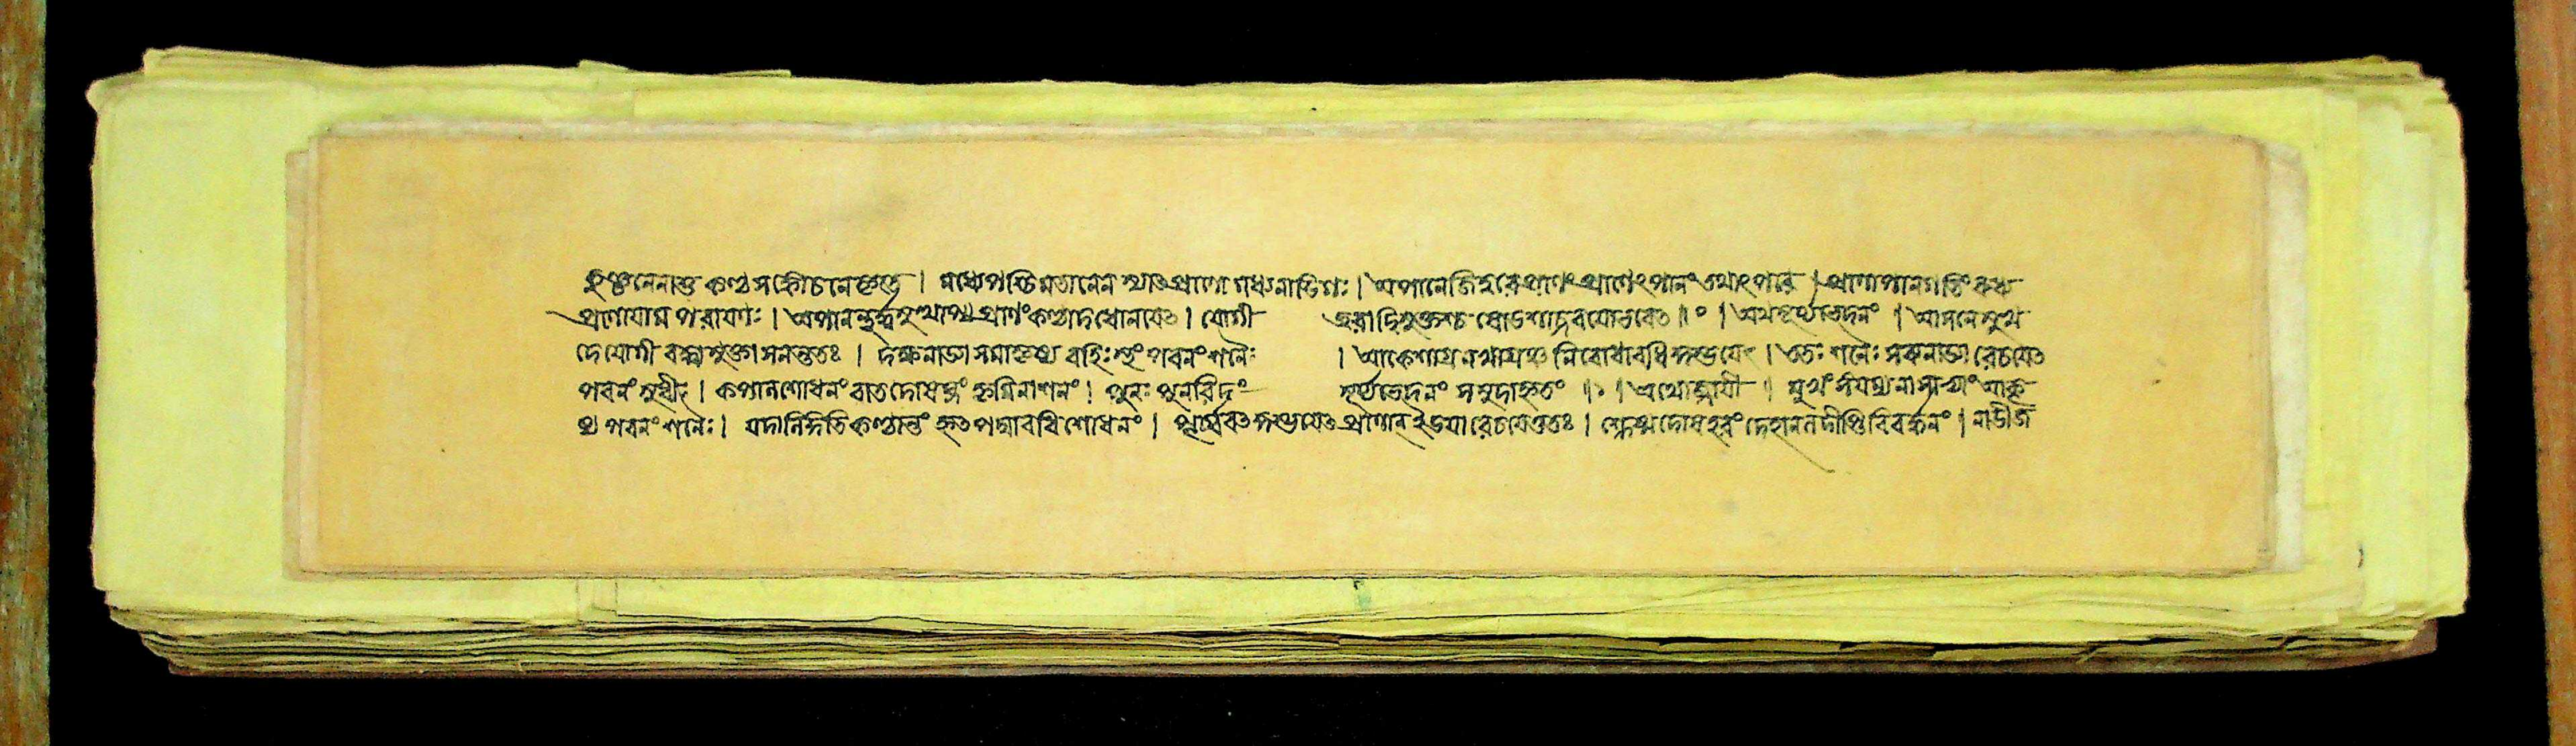 কুঞ্চনেনাশু কণ্ঠসঙ্কোচনেকৃতে । মধ্যেপশ্চিমতানেন স্যাৎপ্রাণো মধ্যনাডিগঃ । অপানেজুহ্বরে প্রাণং প্রাণেৎপানং তথাৎপরে । প্রাণাপানগতিং রুধ্য
প্রাণায়াম পরায়ণঃ । অপানমূর্দ্ধ্বমুত্থাপ্য প্রাণংকণ্ঠাদধোনয়েৎ । যোগী জরাবিমুক্তশ্চ ষোডশাদ্দবয়োভবেৎ ॥ ° । অথসূর্য্যভেদনং । আসনেসুখ
দেযোগী বদ্ধ্বামুক্ত্যাসনন্ততঃ । দক্ষনাড্যা সমাকৃষ্য বহিঃস্থং পবনং শনৈঃ । আকেশাগ্রনখাগ্রঞ্চ নিরোধাবধিকুম্ভয়েৎ । ততঃ শনৈঃ সব্যনাড্যা রেচয়েৎ
পবনং সুধীঃ । কপালশোধনং বাতদোষঘ্নং কৃমিনাশনং । পুনঃ পুনরিদং সূর্য্যভেদনং সমুদাহৃতং ॥ ° । অথোজ্জায়ী । মুখং সংযম্যনাসাভ্যাং আকৃ
ষ্য পবনং শনৈঃ । যদানির্গতিকণ্ঠান্তং হৃৎপদ্মাবধিশোধনং । পূর্ব্ববৎকুম্ভয়েৎ প্রাণান্ইডয়া রেচয়েত্ততঃ । শ্লেষ্মদোষহরং দেহানলদীপ্তিবিবর্দ্ধনং । নাডীজ